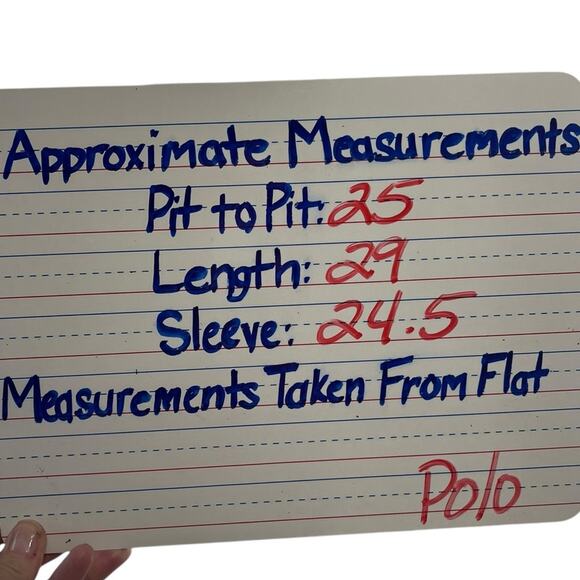 Approximate Measurements
Pit to Pit: 25
Length: 29
Sleeve: 24.5
Measurements Taken From Flat
Polo